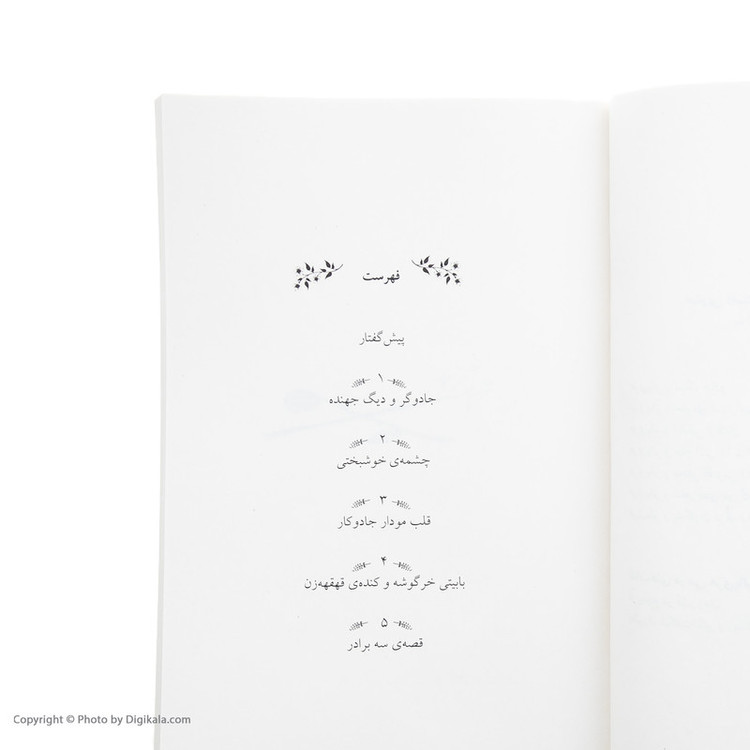 فهرست
پیش‌گفتار
۱
جادوگر و دیگ جهنده
۲
چشمه‌ی خوشبختی
۳
قلب مودار جادوکار
۴
بابیتی خرگوشه و کنده‌ی قهقهه‌زن
۵
قصه‌ی سه برادر
Copyright © Photo by Digikala.com